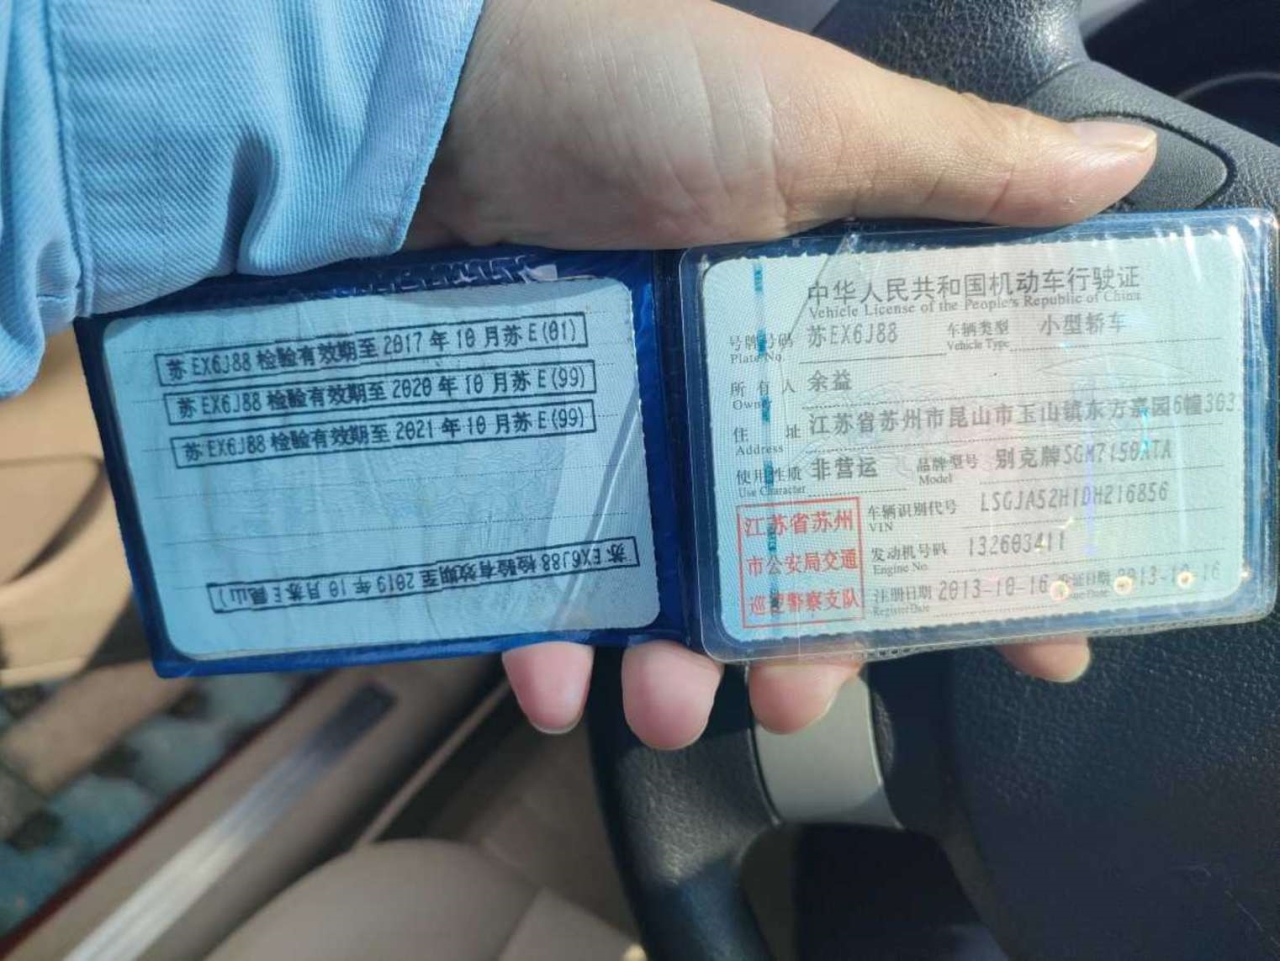 苏EX6J88检验有效期至2017年10月苏E(01)
苏EX6J88检验有效期至2020年10月苏E(99)
苏EX6J88检验有效期至2021年10月苏E(99)
苏EX6J88检验有效期至2019年10月苏E昆山)
中华人民共和国机动车行驶证
Vehicle License of the People's Republic of China
号牌号码 苏EX6J88 车辆类型 小型轿车
Plate No. Vehicle Type
所有人 余益
Owner
住址 江苏省苏州市昆山市玉山镇东方嘉园6幢303
Address
使用性质 非营运 品牌型号 别克牌SGM7150ATA
Use Character Model
江苏省苏州
市公安局交通
巡逻警察支队
车辆识别代号 LSGJA52H1DH216856
VIN
发动机号码 132603411
Engine No.
注册日期 2013-10-16 发证日期 2013-10-16
Register Date Issue Date